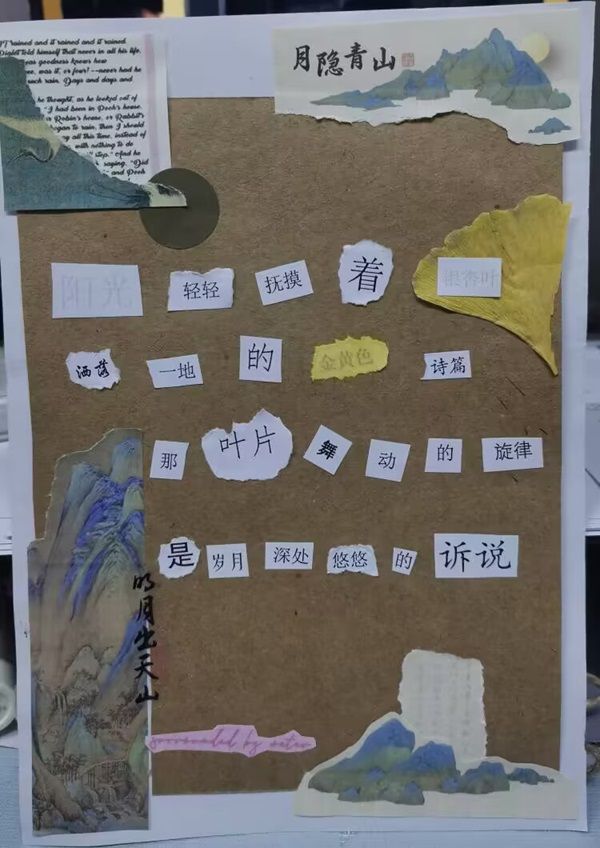 Trained and it rained and it rained
told himself that never in all his life,
goodness knows how
was it, or four! --never had he
such rain. Days and days and
he thought, as he looked out of
"I had been in Pooh's house,
Robin's house, or Rabbit's
began to rain, then I should
all this time, instead of
with nothing to do
stop." And he
saying, "Did
and Pooh
月隐青山
阳光 轻轻 抚摸 着 银杏叶
洒落 一地 的 金黄色 诗篇
那 叶片 舞 动 的 旋律
是 岁月 深处 悠悠 的 诉说
明月出天山
surrounded by water